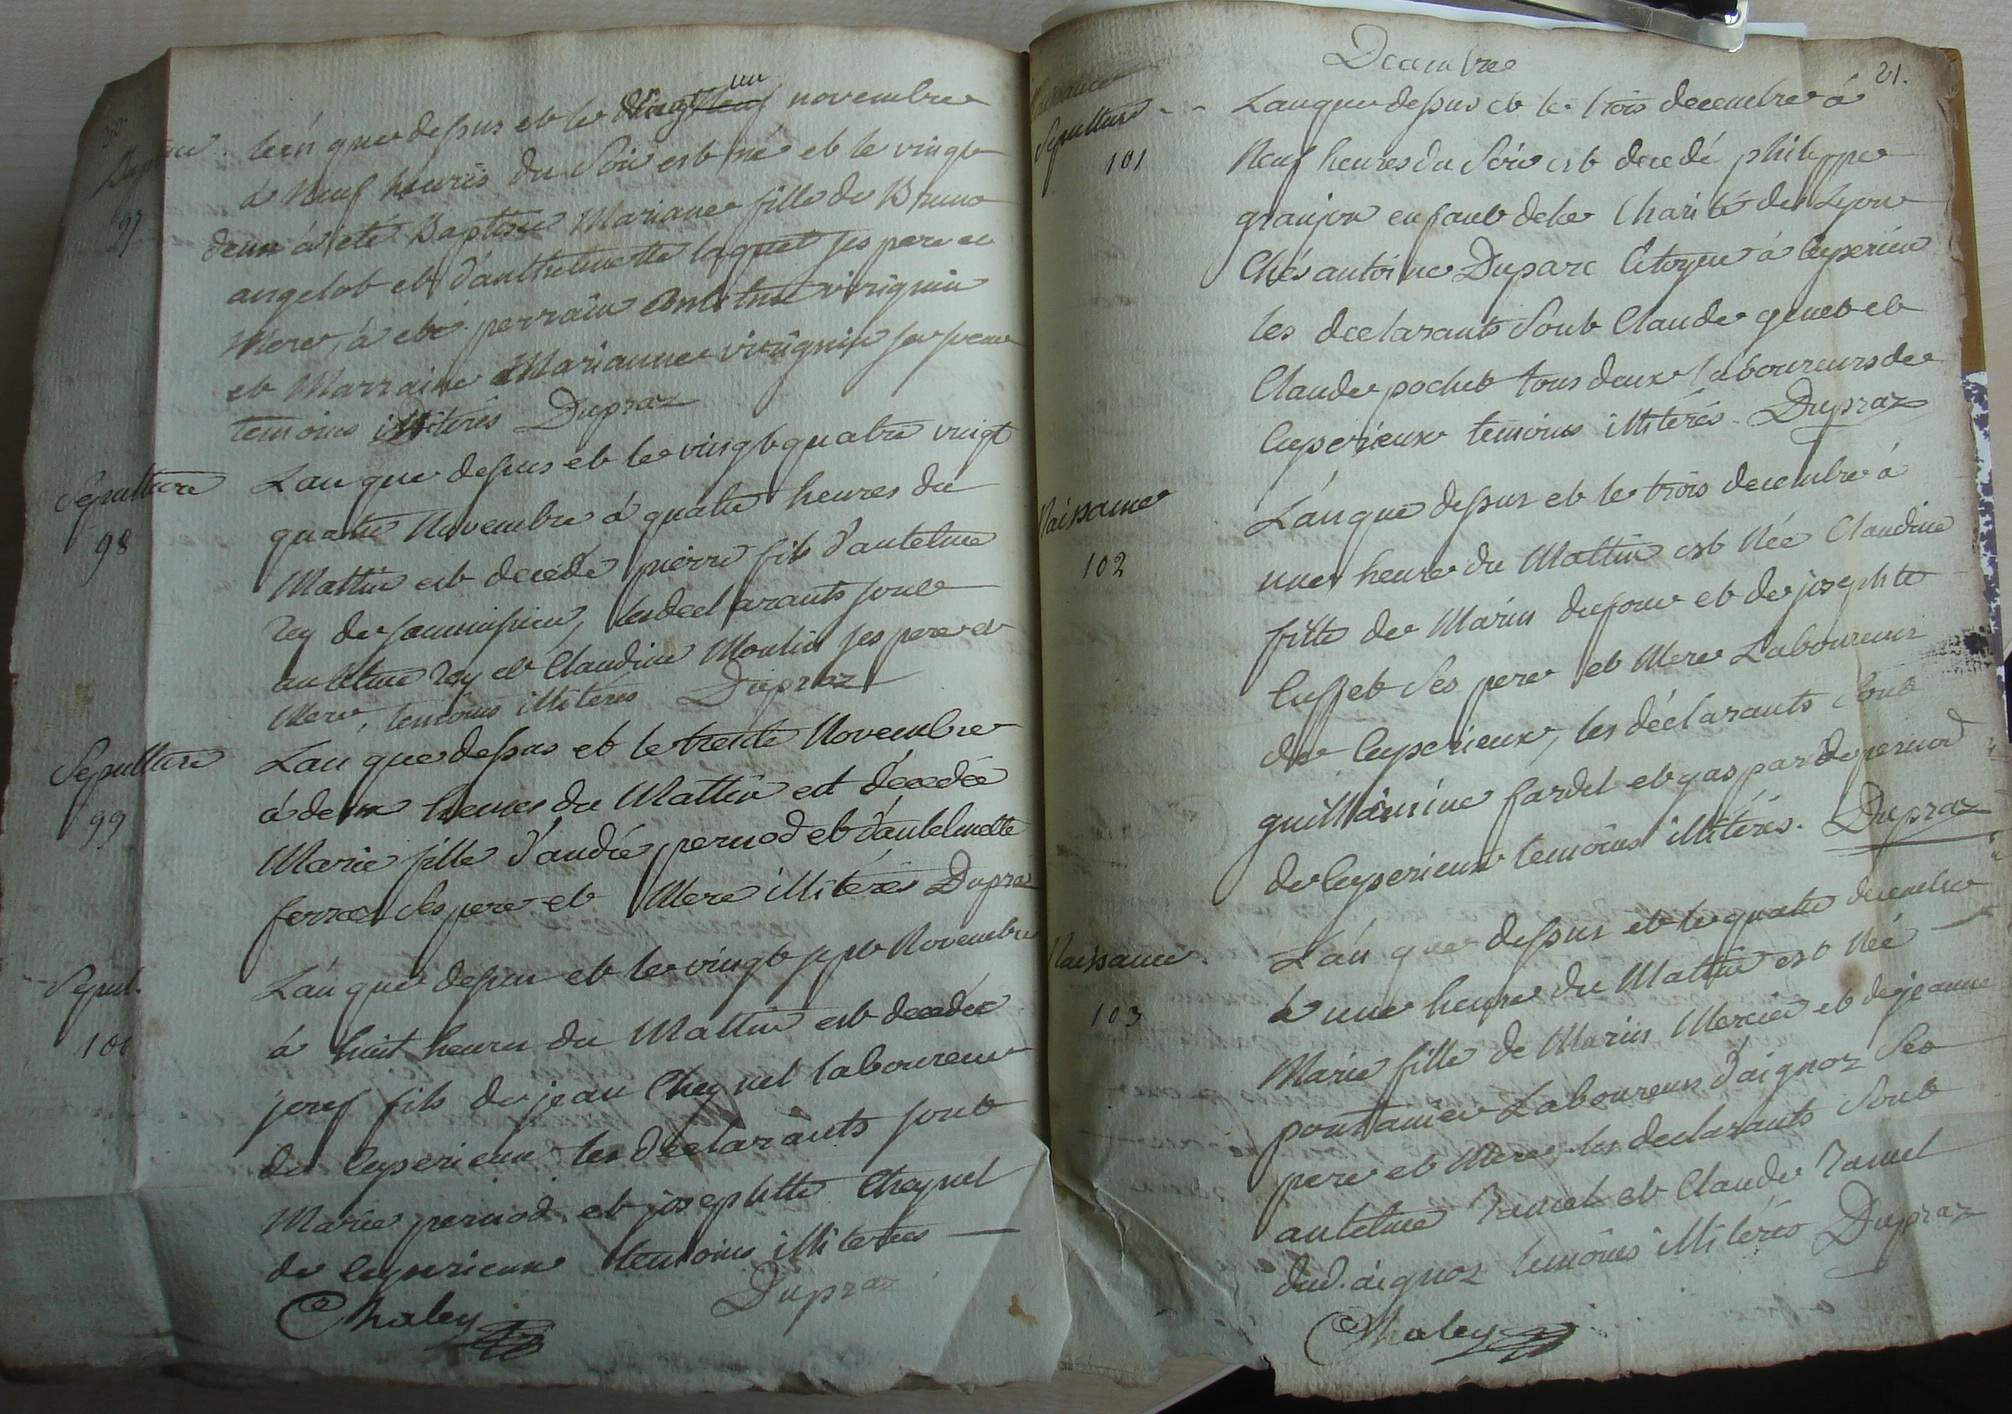 Bap
97
L'an que dessus et le vingt un novembre
à Neuf heures du Soir est né et le vingt
deux à eté Baptisé Mariane fille de Bruno
angelot et d'anthelmette laquet ses pere et
Mere, à eté perrain Antelme virignin
et Marraine Marianne virignin sa
temoins illiterés Dupraz
Sepulture
98
L'an que dessus et le vingt quatre vingt
quatre Novembre à quatre heures du
Mattin est decedé pierre fils d'antelme
Rey de les declarants sont
antelme Rey et Claudine Moulin ses pere et
Mere, temoins illiterés Dupraz
Sepulture
99
L'an que dessus et le trente Novembre
à deux heures du Mattin est décedée
Marie fille d'andré pernod et d'antelmette
ferraz ses pere et Mere illiterés Dupraz
Sepul.
100
L'an que dessus et le vingt sept Novembre
à huit heures du Mattin est decedée
josef fils de jean Cheynel laboureur
de Ceyserieux les declarants sont
Marie pernod et josephtte Cheynel
de Ceyserieux temoins illiterées
Dupraz
Chaley
Decembre
21.
Naissance
Sepulture
101
L'an que dessus et le trois decembre à
Neuf heures du Soir est decedé philippe
granjon enfant de la Charité de Lyon
Chés antoine Duparc Citoyen à Ceyserieu
les declarants Sont Claude genet et
Claude pochet tous deux laboureurs de
Ceyserieux temoins illiterés. Dupraz
Naissance
102
L'an que dessus et le trois decembre à
une heure du Mattin est Née Claudine
fille de Marin dufour et de josephte
Cusset Ses pere et Mere Laboureurs
de Ceyserieux, les déclarants Sont
guillamine fardel et gaspard pernod
de Ceyserieux temoins illiterés. Dupraz
Naissance.
103
L'an que dessus et le quatre decembre
à une heure du Mattin est Née
Marie fille de Marin Mercier et de jeanne
pontanier Laboureurs d'aignoz Ses
pere et Mere, les declarants Sont
antelme Ramel et Claude Ramel
dud. aignoz temoins illiterés Dupraz
Chaley